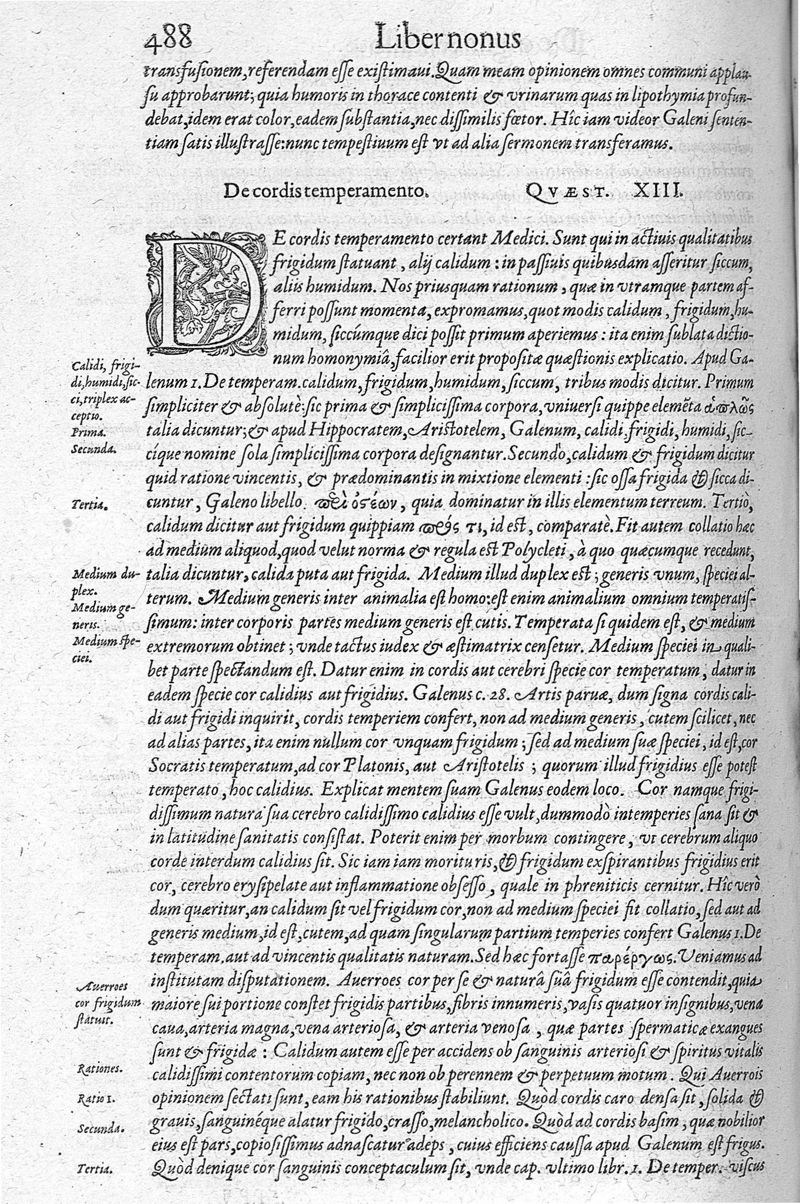 488 Liber nonus
transfusionem, referendam esse existimaui. Quam meam opinionem omnes communi applau-
su approbarunt; quia humoris in thorace contenti & vrinarum quas in lipothymia profun-
debat, idem erat color, eadem substantia, nec dissimilis fœtor. Hîc iam videor Galeni senten-
tiam satis illustrasse: nunc tempestiuum est vt ad alia sermonem transferamus.
De cordis temperamento. QVÆST. XIII.
DE cordis temperamento certant Medici. Sunt qui in actiuis qualitatibus
frigidum statuant, alij calidum: in passiuis quibusdam asseritur siccum,
aliis humidum. Nos priusquam rationum, quæ in vtramque partem af-
ferri possunt momenta, expromamus, quot modis calidum, frigidum, hu-
midum, siccúmque dici possit primum aperiemus: ita enim sublata dictio-
num homonymiâ, facilior erit propositæ quæstionis explicatio. Apud Ga-
Calidi, frigi-
di, humidi, sic-
ci, triplex ac-
ceptio.
Prima.
Secunda.
lenum 1. De temperam. calidum, frigidum, humidum, siccum, tribus modis dicitur. Primum
simpliciter & absolutè: sic prima & simplicissima corpora, vniuersi quippe elemẽta ἁπλῶς
talia dicuntur; & apud Hippocratem, Aristotelem, Galenum, calidi, frigidi, humidi, sic-
cique nomine sola simplicissima corpora designantur. Secundò, calidum & frigidum dicitur
quid ratione vincentis, & prædominantis in mixtione elementi: sic ossa frigida & sicca di-
Tertia.
cuntur, Galeno libello. περὶ ὀστέων, quia dominatur in illis elementum terreum. Tertiò,
calidum dicitur aut frigidum quippiam πρός τι, id est, comparatè. Fit autem collatio hæc
ad medium aliquod, quod velut norma & regula est Polycleti, à quo quæcumque recedunt,
Medium du-
plex.
Medium ge-
neris.
Medium spe-
ciei.
talia dicuntur, calida puta aut frigida. Medium illud duplex est; generis vnum, speciei al-
terum. Medium generis inter animalia est homo: est enim animalium omnium temperatis-
simum: inter corporis partes medium generis est cutis. Temperata si quidem est, & medium
extremorum obtinet; vnde tactus iudex & æstimatrix censetur. Medium speciei in quali-
bet parte spectandum est. Datur enim in cordis aut cerebri specie cor temperatum, datur in
eadem specie cor calidius aut frigidius. Galenus c. 28. Artis paruæ, dum signa cordis cali-
di aut frigidi inquirit, cordis temperiem confert, non ad medium generis, cutem scilicet, nec
ad alias partes, ita enim nullum cor vnquam frigidum; sed ad medium suæ speciei, id est, cor
Socratis temperatum, ad cor Platonis, aut Aristotelis; quorum illud frigidius esse potest
temperato, hoc calidius. Explicat mentem suam Galenus eodem loco. Cor namque frigi-
dissimum natura sua cerebro calidissimo calidius esse vult, dummodò intemperies sana sit &
in latitudine sanitatis consistat. Poterit enim per morbum contingere, vt cerebrum aliquo
corde interdum calidius sit. Sic iam iam morituris, & frigidum exspirantibus frigidius erit
cor, cerebro erysipelate aut inflammatione obsesso, quale in phreniticis cernitur. Hîc verò
dum quæritur, an calidum sit vel frigidum cor, non ad medium speciei fit collatio, sed aut ad
generis medium, id est, cutem, ad quam singularum partium temperies confert Galenus 1. De
temperam. aut ad vincentis qualitatis naturam. Sed hæc fortasse παρέργως. Veniamus ad
Auerroes
cor frigidum
statuit.
institutam disputationem. Auerroes cor per se & naturâ suâ frigidum esse contendit, quia
maiore sui portione constet frigidis partibus, fibris innumeris, vasis quatuor insignibus, vena
caua, arteria magna, vena arteriosa, & arteria venosa, quæ partes spermaticæ exangues
sunt & frigidæ: Calidum autem esse per accidens ob sanguinis arteriosi & spiritus vitalis
Rationes.
calidissimi contentorum copiam, nec non ob perennem & perpetuum motum. Qui Auerrois
Ratio 1.
opinionem sectati sunt, eam his rationibus stabiliunt. Quòd cordis caro densa sit, solida &
grauis, sanguinéque alatur frigido, crasso, melancholico. Quòd ad cordis basim, quæ nobilior
Secunda.
eius est pars, copiosissimus adnascatur adeps, cuius efficiens caussa apud Galenum est frigus.
Tertia.
Quòd denique cor sanguinis conceptaculum sit, vnde cap. vltimo libr. 1. De temper. viscus